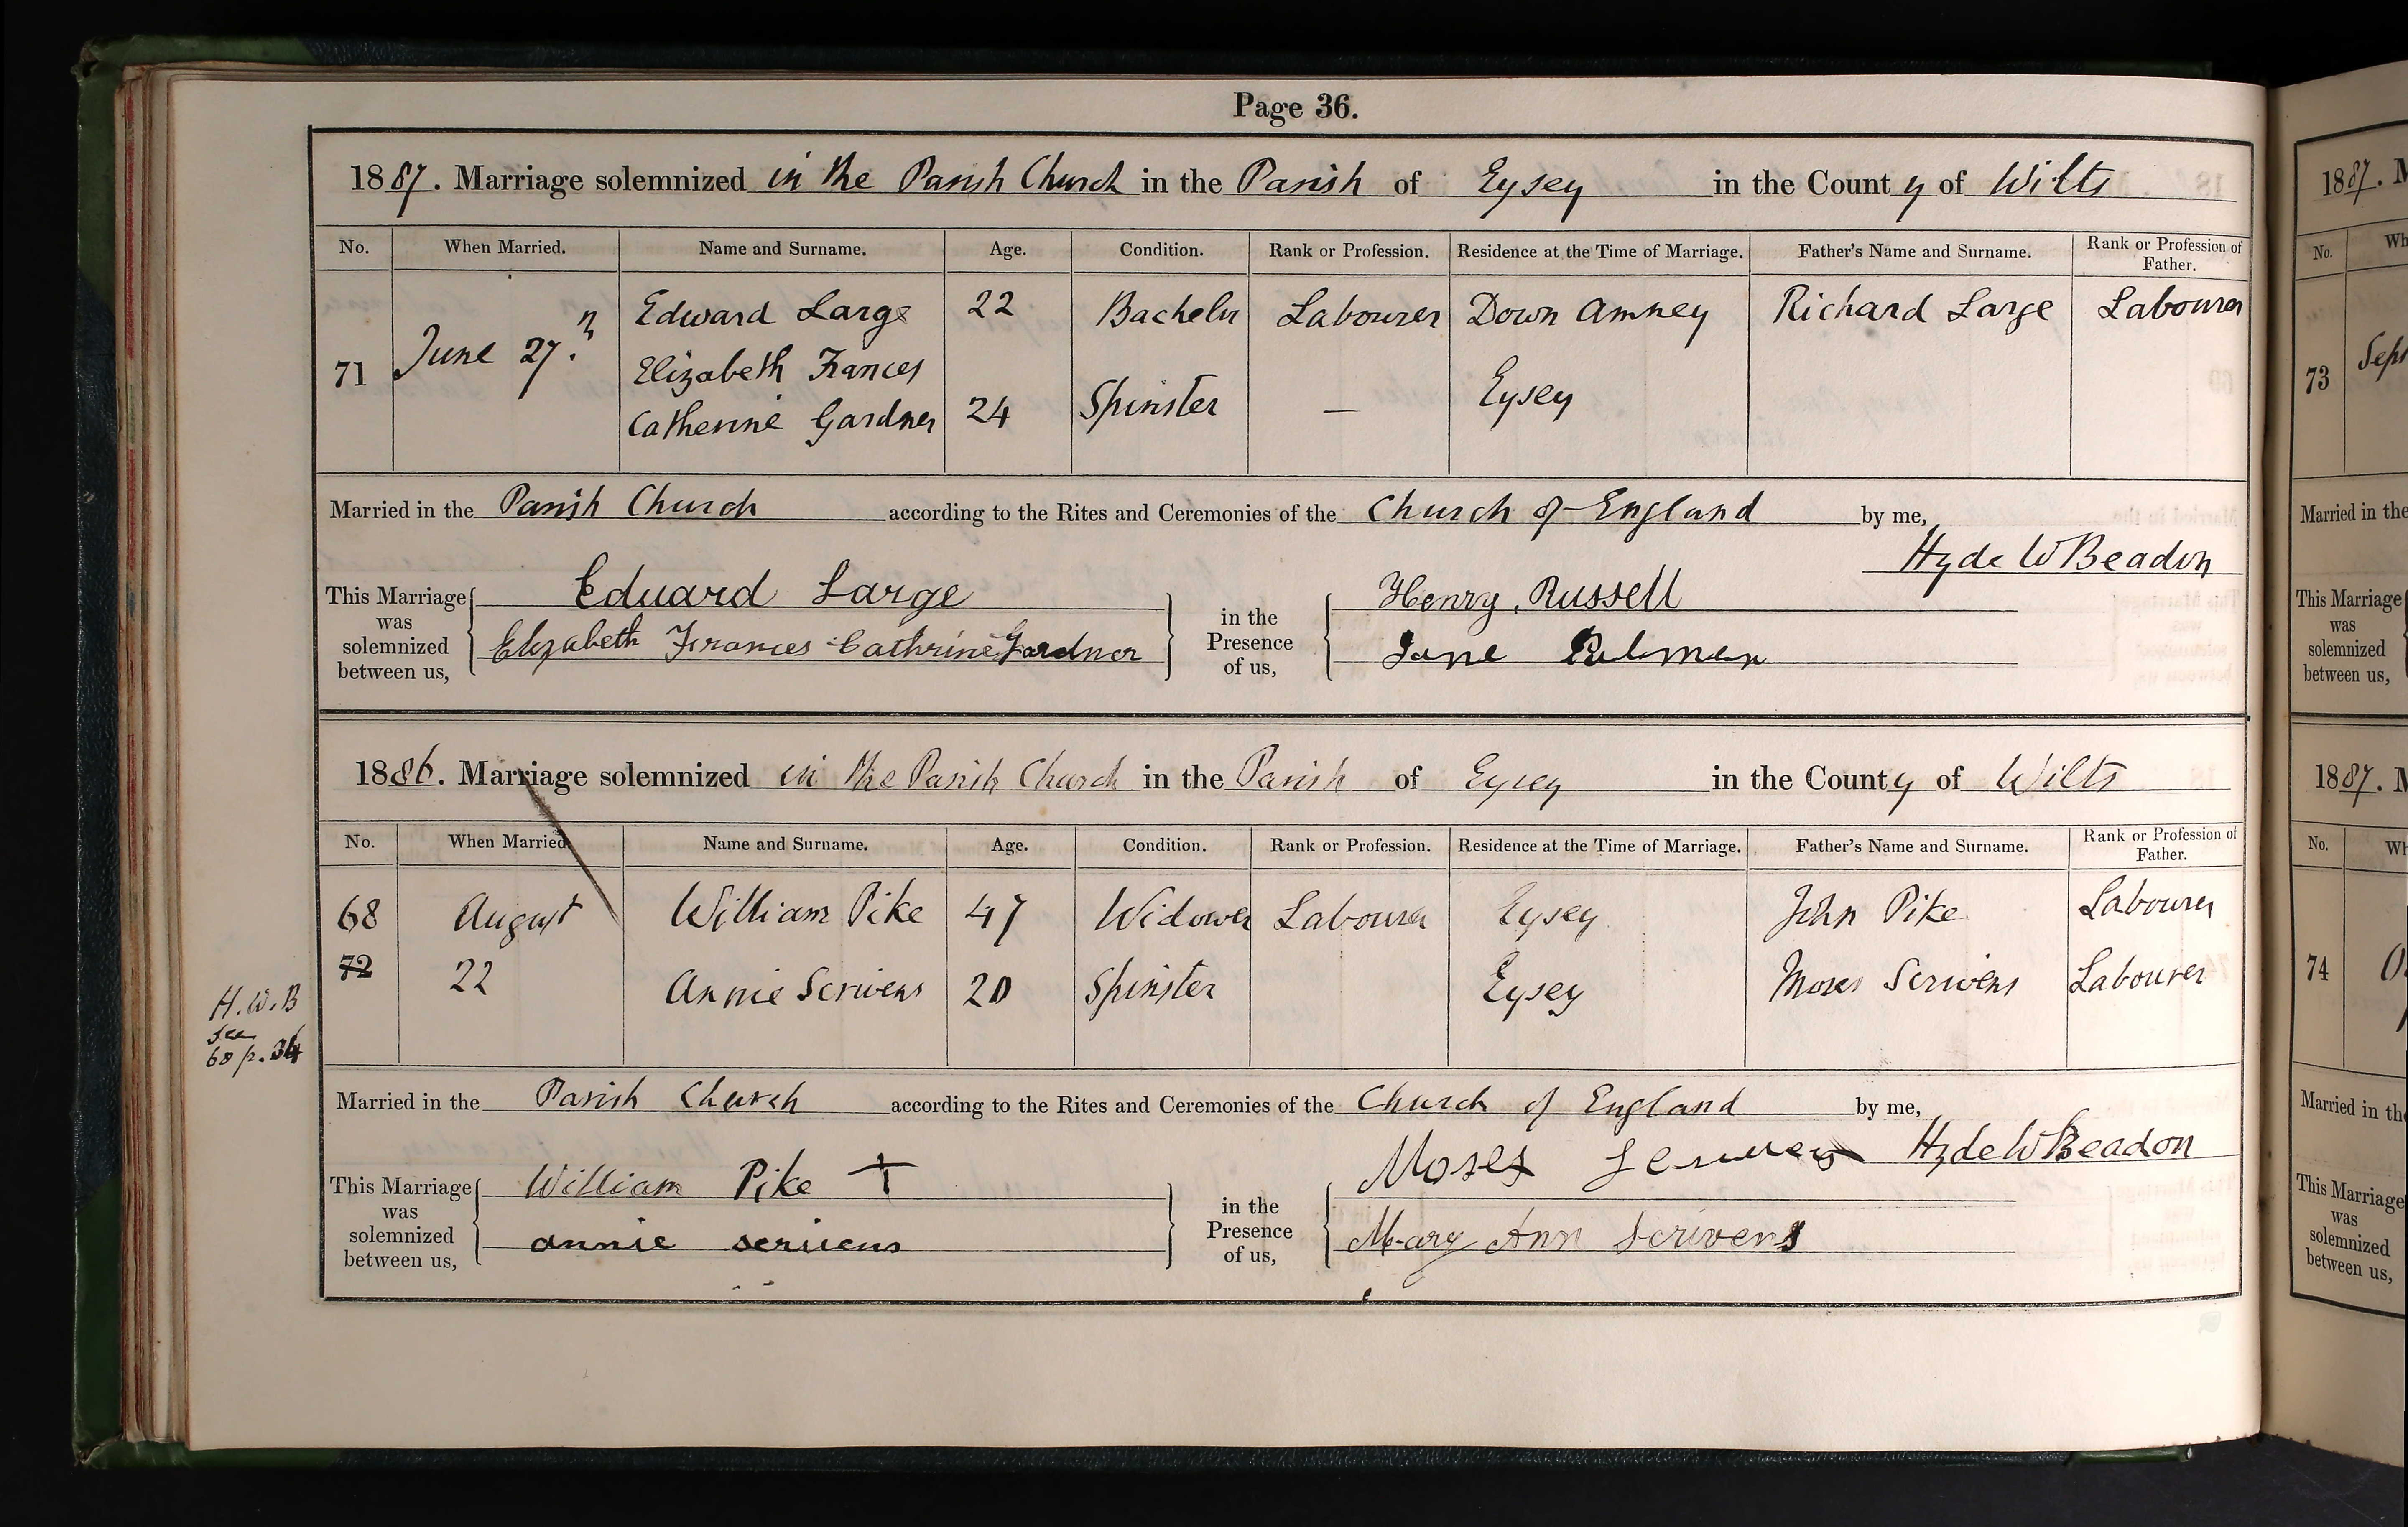 Page 36.
1887. Marriage solemnized in the Parish Church in the Parish of Eysey in the County of Wilts
No. When Married. Name and Surname. Age. Condition. Rank or Profession. Residence at the Time of Marriage. Father's Name and Surname. Rank or Profession of Father.
71 June 27. Edward Large 22 Bachelor Labourer Down Amney Richard Large Labourer
Elizabeth Frances
Catherine Gardner 24 Spinster — Eysey
Married in the Parish Church according to the Rites and Ceremonies of the Church of England by me,
Hyde W Beadon
This Marriage was solemnized between us,
Eduard Large
Elizabeth Frances Cathrine Gardner
in the Presence of us,
Henry Russell
Jane
1886. Marriage solemnized in the Parish Church in the Parish of Eysey in the County of Wilts
No. When Married. Name and Surname. Age. Condition. Rank or Profession. Residence at the Time of Marriage. Father's Name and Surname. Rank or Profession of Father.
68 August William Pike 47 Widower Labourer Eysey John Pike Labourer
72 22 Annie Scrivens 20 Spinster Eysey Moses Scrivens Labourer
H.W.B
see
68 p. 34
Married in the Parish Church according to the Rites and Ceremonies of the Church of England by me,
Hyde W Beadon
This Marriage was solemnized between us,
William Pike +
annie scrivens
in the Presence of us,
Moses
Mary Ann Scrivens
1887. M
No. Wh
73 Sept
Married in the
This Marriage
was
solemnized
between us,
1887. M
No. Wh
74
Married in the
This Marriage
was
solemnized
between us,